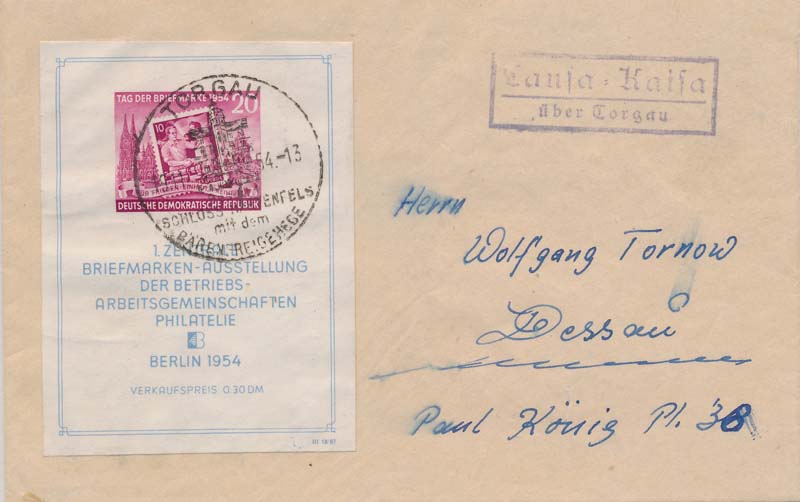 TAG DER BRIEFMARKE 1954 20
10
DEUTSCHE DEMOKRATISCHE REPUBLIK
TORGAU
54.-13
SCHLOSS
mit dem
1. ZEN
BRIEFMARKEN-AUSSTELLUNG
DER BETRIEBS-
ARBEITSGEMEINSCHAFTEN
PHILATELIE
B
BERLIN 1954
VERKAUFSPREIS 0.30 DM
III 18 97
Lausa-Kaisa
über Torgau
Herrn
Wolfgang Tornow
Dessau
Paul König Pl. 38